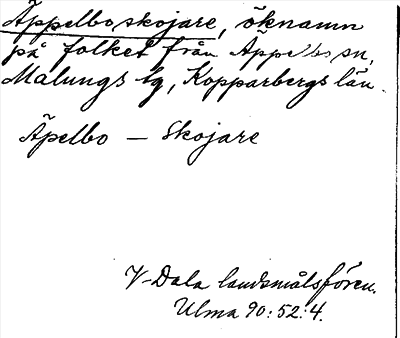 Äppelboskojare, öknamn
på folket från Äppelbo sn,
Malungs tg, Kopparbergs län.
Äpelbo — Skojare
V-Dala landsmålsfören.
Ulma 90:52:4.